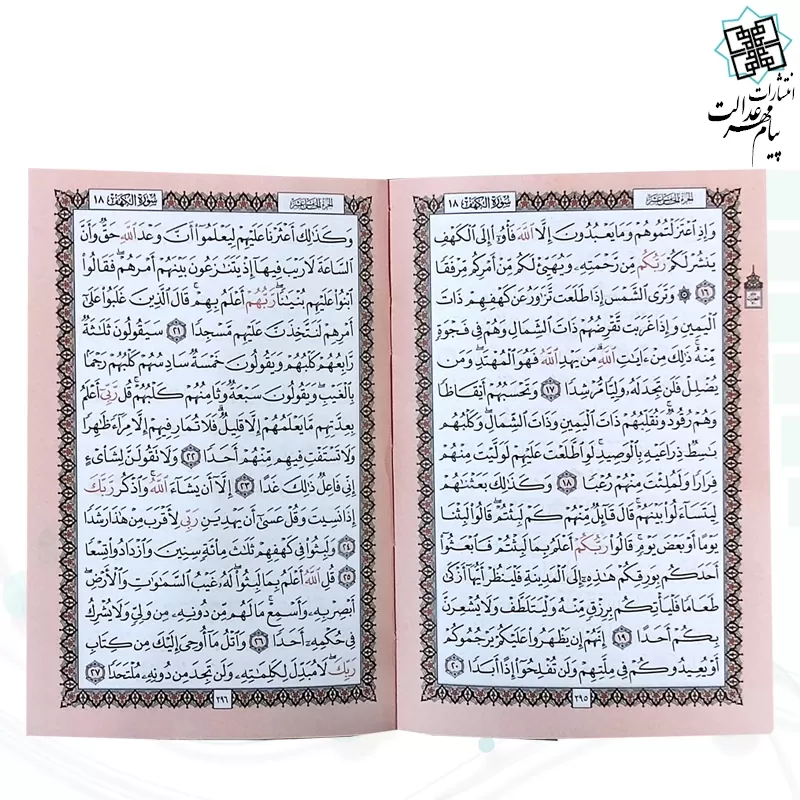 انتشارات
پیام مهر عدالت
الجزء الخامس عشر
سورة الكهف ١٨
وَإِذِ ٱعْتَزَلْتُمُوهُمْ وَمَا يَعْبُدُونَ إِلَّا ٱللَّهَ فَأْوُۥٓا۟ إِلَى ٱلْكَهْفِ
يَنشُرْ لَكُمْ رَبُّكُم مِّن رَّحْمَتِهِۦ وَيُهَيِّئْ لَكُم مِّنْ أَمْرِكُم مِّرْفَقًا
١٦ ۞ وَتَرَى ٱلشَّمْسَ إِذَا طَلَعَت تَّزَٰوَرُ عَن كَهْفِهِمْ ذَاتَ
ٱلْيَمِينِ وَإِذَا غَرَبَت تَّقْرِضُهُمْ ذَاتَ ٱلشِّمَالِ وَهُمْ فِى فَجْوَةٍ
مِّنْهُ ۚ ذَٰلِكَ مِنْ ءَايَٰتِ ٱللَّهِ ۗ مَن يَهْدِ ٱللَّهُ فَهُوَ ٱلْمُهْتَدِ ۖ وَمَن
يُضْلِلْ فَلَن تَجِدَ لَهُۥ وَلِيًّا مُّرْشِدًا ١٧ وَتَحْسَبُهُمْ أَيْقَاظًا
وَهُمْ رُقُودٌ ۚ وَنُقَلِّبُهُمْ ذَاتَ ٱلْيَمِينِ وَذَاتَ ٱلشِّمَالِ ۖ وَكَلْبُهُم
بَٰسِطٌ ذِرَاعَيْهِ بِٱلْوَصِيدِ ۚ لَوِ ٱطَّلَعْتَ عَلَيْهِمْ لَوَلَّيْتَ مِنْهُمْ
فِرَارًا وَلَمُلِئْتَ مِنْهُمْ رُعْبًا ١٨ وَكَذَٰلِكَ بَعَثْنَٰهُمْ
لِيَتَسَآءَلُوا۟ بَيْنَهُمْ ۚ قَالَ قَآئِلٌ مِّنْهُمْ كَمْ لَبِثْتُمْ ۖ قَالُوا۟ لَبِثْنَا
يَوْمًا أَوْ بَعْضَ يَوْمٍ ۚ قَالُوا۟ رَبُّكُمْ أَعْلَمُ بِمَا لَبِثْتُمْ فَٱبْعَثُوٓا۟
أَحَدَكُم بِوَرِقِكُمْ هَٰذِهِۦٓ إِلَى ٱلْمَدِينَةِ فَلْيَنظُرْ أَيُّهَآ أَزْكَىٰ
طَعَامًا فَلْيَأْتِكُم بِرِزْقٍ مِّنْهُ وَلْيَتَلَطَّفْ وَلَا يُشْعِرَنَّ
بِكُمْ أَحَدًا ١٩ إِنَّهُمْ إِن يَظْهَرُوا۟ عَلَيْكُمْ يَرْجُمُوكُمْ
أَوْ يُعِيدُوكُمْ فِى مِلَّتِهِمْ وَلَن تُفْلِحُوٓا۟ إِذًا أَبَدًا ٢٠
٢٩٥
الجزء الخامس عشر
سورة الكهف ١٨
وَكَذَٰلِكَ أَعْثَرْنَا عَلَيْهِمْ لِيَعْلَمُوٓا۟ أَنَّ وَعْدَ ٱللَّهِ حَقٌّ وَأَنَّ
ٱلسَّاعَةَ لَا رَيْبَ فِيهَآ إِذْ يَتَنَٰزَعُونَ بَيْنَهُمْ أَمْرَهُمْ ۖ فَقَالُوا۟
ٱبْنُوا۟ عَلَيْهِم بُنْيَٰنًا ۖ رَّبُّهُمْ أَعْلَمُ بِهِمْ ۚ قَالَ ٱلَّذِينَ غَلَبُوا۟ عَلَىٰٓ
أَمْرِهِمْ لَنَتَّخِذَنَّ عَلَيْهِم مَّسْجِدًا ٢١ سَيَقُولُونَ ثَلَٰثَةٌ
رَّابِعُهُمْ كَلْبُهُمْ وَيَقُولُونَ خَمْسَةٌ سَادِسُهُمْ كَلْبُهُمْ رَجْمًۢا
بِٱلْغَيْبِ ۖ وَيَقُولُونَ سَبْعَةٌ وَثَامِنُهُمْ كَلْبُهُمْ ۚ قُل رَّبِّىٓ أَعْلَمُ
بِعِدَّتِهِم مَّا يَعْلَمُهُمْ إِلَّا قَلِيلٌ ۗ فَلَا تُمَارِ فِيهِمْ إِلَّا مِرَآءً ظَٰهِرًا
وَلَا تَسْتَفْتِ فِيهِم مِّنْهُمْ أَحَدًا ٢٢ وَلَا تَقُولَنَّ لِشَا۟ىْءٍ
إِنِّى فَاعِلٌ ذَٰلِكَ غَدًا ٢٣ إِلَّآ أَن يَشَآءَ ٱللَّهُ ۚ وَٱذْكُر رَّبَّكَ
إِذَا نَسِيتَ وَقُلْ عَسَىٰٓ أَن يَهْدِيَنِ رَبِّى لِأَقْرَبَ مِنْ هَٰذَا رَشَدًا
٢٤ وَلَبِثُوا۟ فِى كَهْفِهِمْ ثَلَٰثَ مِا۟ئَةٍ سِنِينَ وَٱزْدَادُوا۟ تِسْعًا
٢٥ قُلِ ٱللَّهُ أَعْلَمُ بِمَا لَبِثُوا۟ ۖ لَهُۥ غَيْبُ ٱلسَّمَٰوَٰتِ وَٱلْأَرْضِ ۖ
أَبْصِرْ بِهِۦ وَأَسْمِعْ ۚ مَا لَهُم مِّن دُونِهِۦ مِن وَلِىٍّ وَلَا يُشْرِكُ
فِى حُكْمِهِۦٓ أَحَدًا ٢٦ وَٱتْلُ مَآ أُوحِىَ إِلَيْكَ مِن كِتَابِ
رَبِّكَ ۖ لَا مُبَدِّلَ لِكَلِمَٰتِهِۦ وَلَن تَجِدَ مِن دُونِهِۦ مُلْتَحَدًا ٢٧
٢٩٦